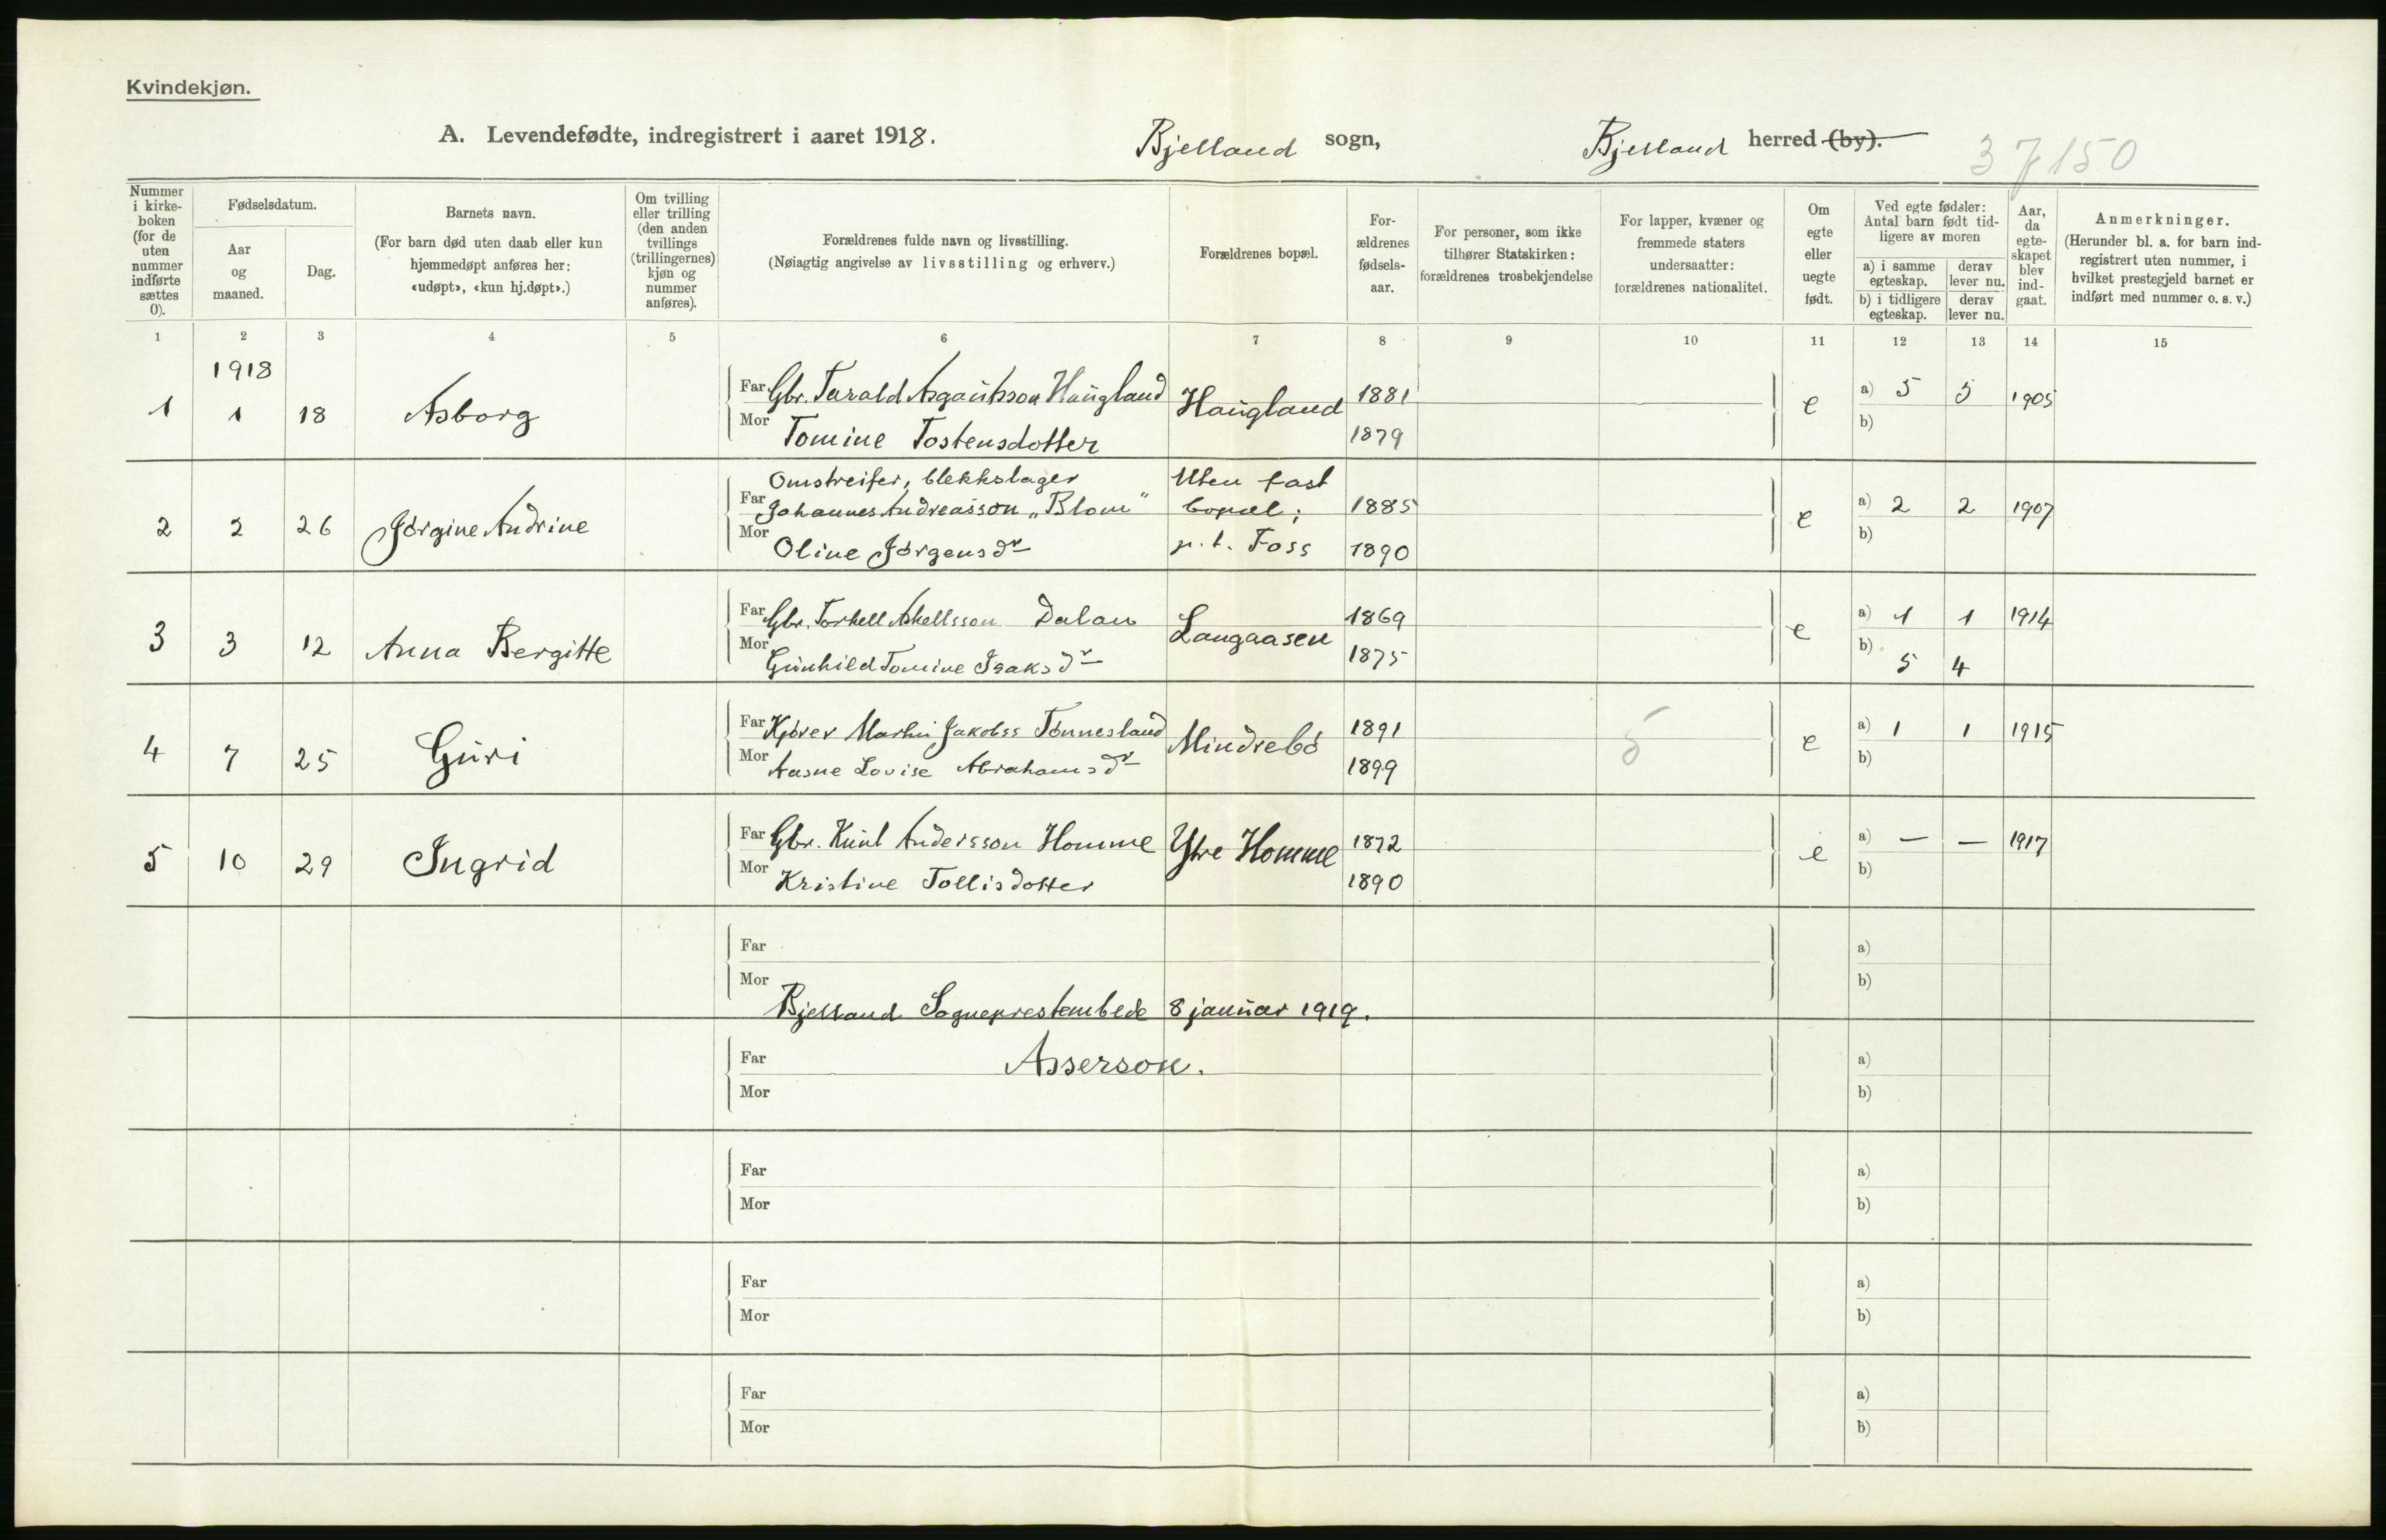 Kvindekjøn.
A. Levendefødte, indregistrert i aaret 1918.
Bjelland sogn,
Bjelland herred (by).
37150
Nummer i kirke-boken (for de uten nummer indførte sættes 0).
Fødselsdatum.
Aar og maaned.
Dag.
Barnets navn.
(For barn død uten daab eller kun hjemmedøpt anføres her: «udøpt», «kun hj.døpt».)
Om tvilling eller trilling (den anden tvillings (trillingernes) kjøn og nummer anføres).
Forældrenes fulde navn og livsstilling.
(Nøiagtig angivelse av livsstilling og erhverv.)
Forældrenes bopæl.
For-ældrenes fødsels-aar.
For personer, som ikke tilhører Statskirken: forældrenes trosbekjendelse
For lapper, kvæner og fremmede staters undersaatter: forældrenes nationalitet.
Om egte eller uegte født.
Ved egte fødsler: Antal barn født tid-ligere av moren
a) i samme egteskap.
derav lever nu.
b) i tidligere egteskap.
derav lever nu.
Aar, da egte-skapet blev ind-gaat.
Anmerkninger.
(Herunder bl. a. for barn ind-registrert uten nummer, i hvilket prestegjeld barnet er indført med nummer o. s. v.)
1 2 3 4 5 6 7 8 9 10 11 12 13 14 15
1918
1 1 18 Asborg
Far Gbr. Tarald Haugland
Mor Tomine Tostensdotter
Haugland
1881
1879
e
a) 5 5 1905
b)
2 2 26 Jørgine Andrine
Omstreifer, blekkslager
Far Johannes Andreasson „Blom"
Mor Oline Jørgensdr
Uten fast
bopæl;
p. t. Foss
1885
1890
e
a) 2 2 1907
b)
3 3 12 Anna Bergitte
Far Gbr. Torkell Askellsson Dalan
Mor Gunhild Tomine Isaksdr
Langaasen
1869
1875
e
a) 1 1 1914
b) 5 4
4 7 25 Guri
Far Kjører Martin Jakobss Tønnesland
Mor Aasne Lovise Abrahamsdr
Mindrebø
1891
1899
5
e
a) 1 1 1915
b)
5 10 29 Ingrid
Far Gbr. Knut Andersson Homme
Mor Kristine Tollisdotter
Ytre Homme
1872
1890
e
a) — — 1917
b)
Far
a)
Mor
b)
Bjelland Sogneprestembede 8 januar 1919.
Far
Asserson.
a)
Mor
b)
Far
a)
Mor
b)
Far
a)
Mor
b)
Far
a)
Mor
b)